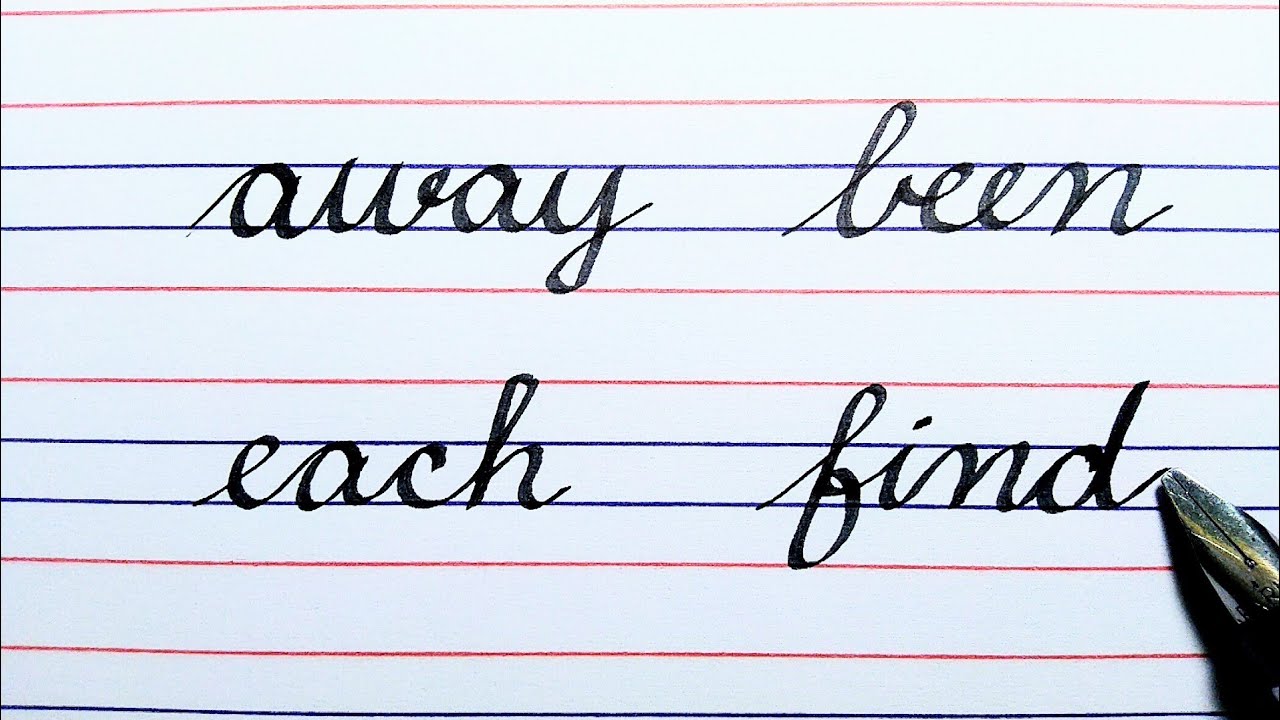 away been
each find